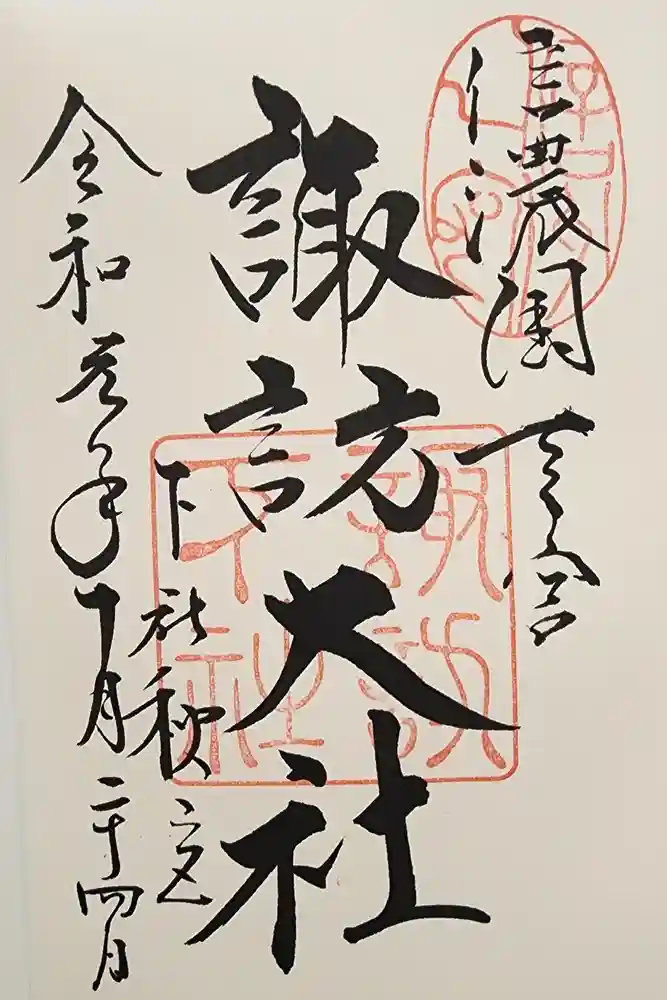 信濃國一之宮
諏訪大社
下社秋宮
令和元年十月二十四日
諏訪
下社